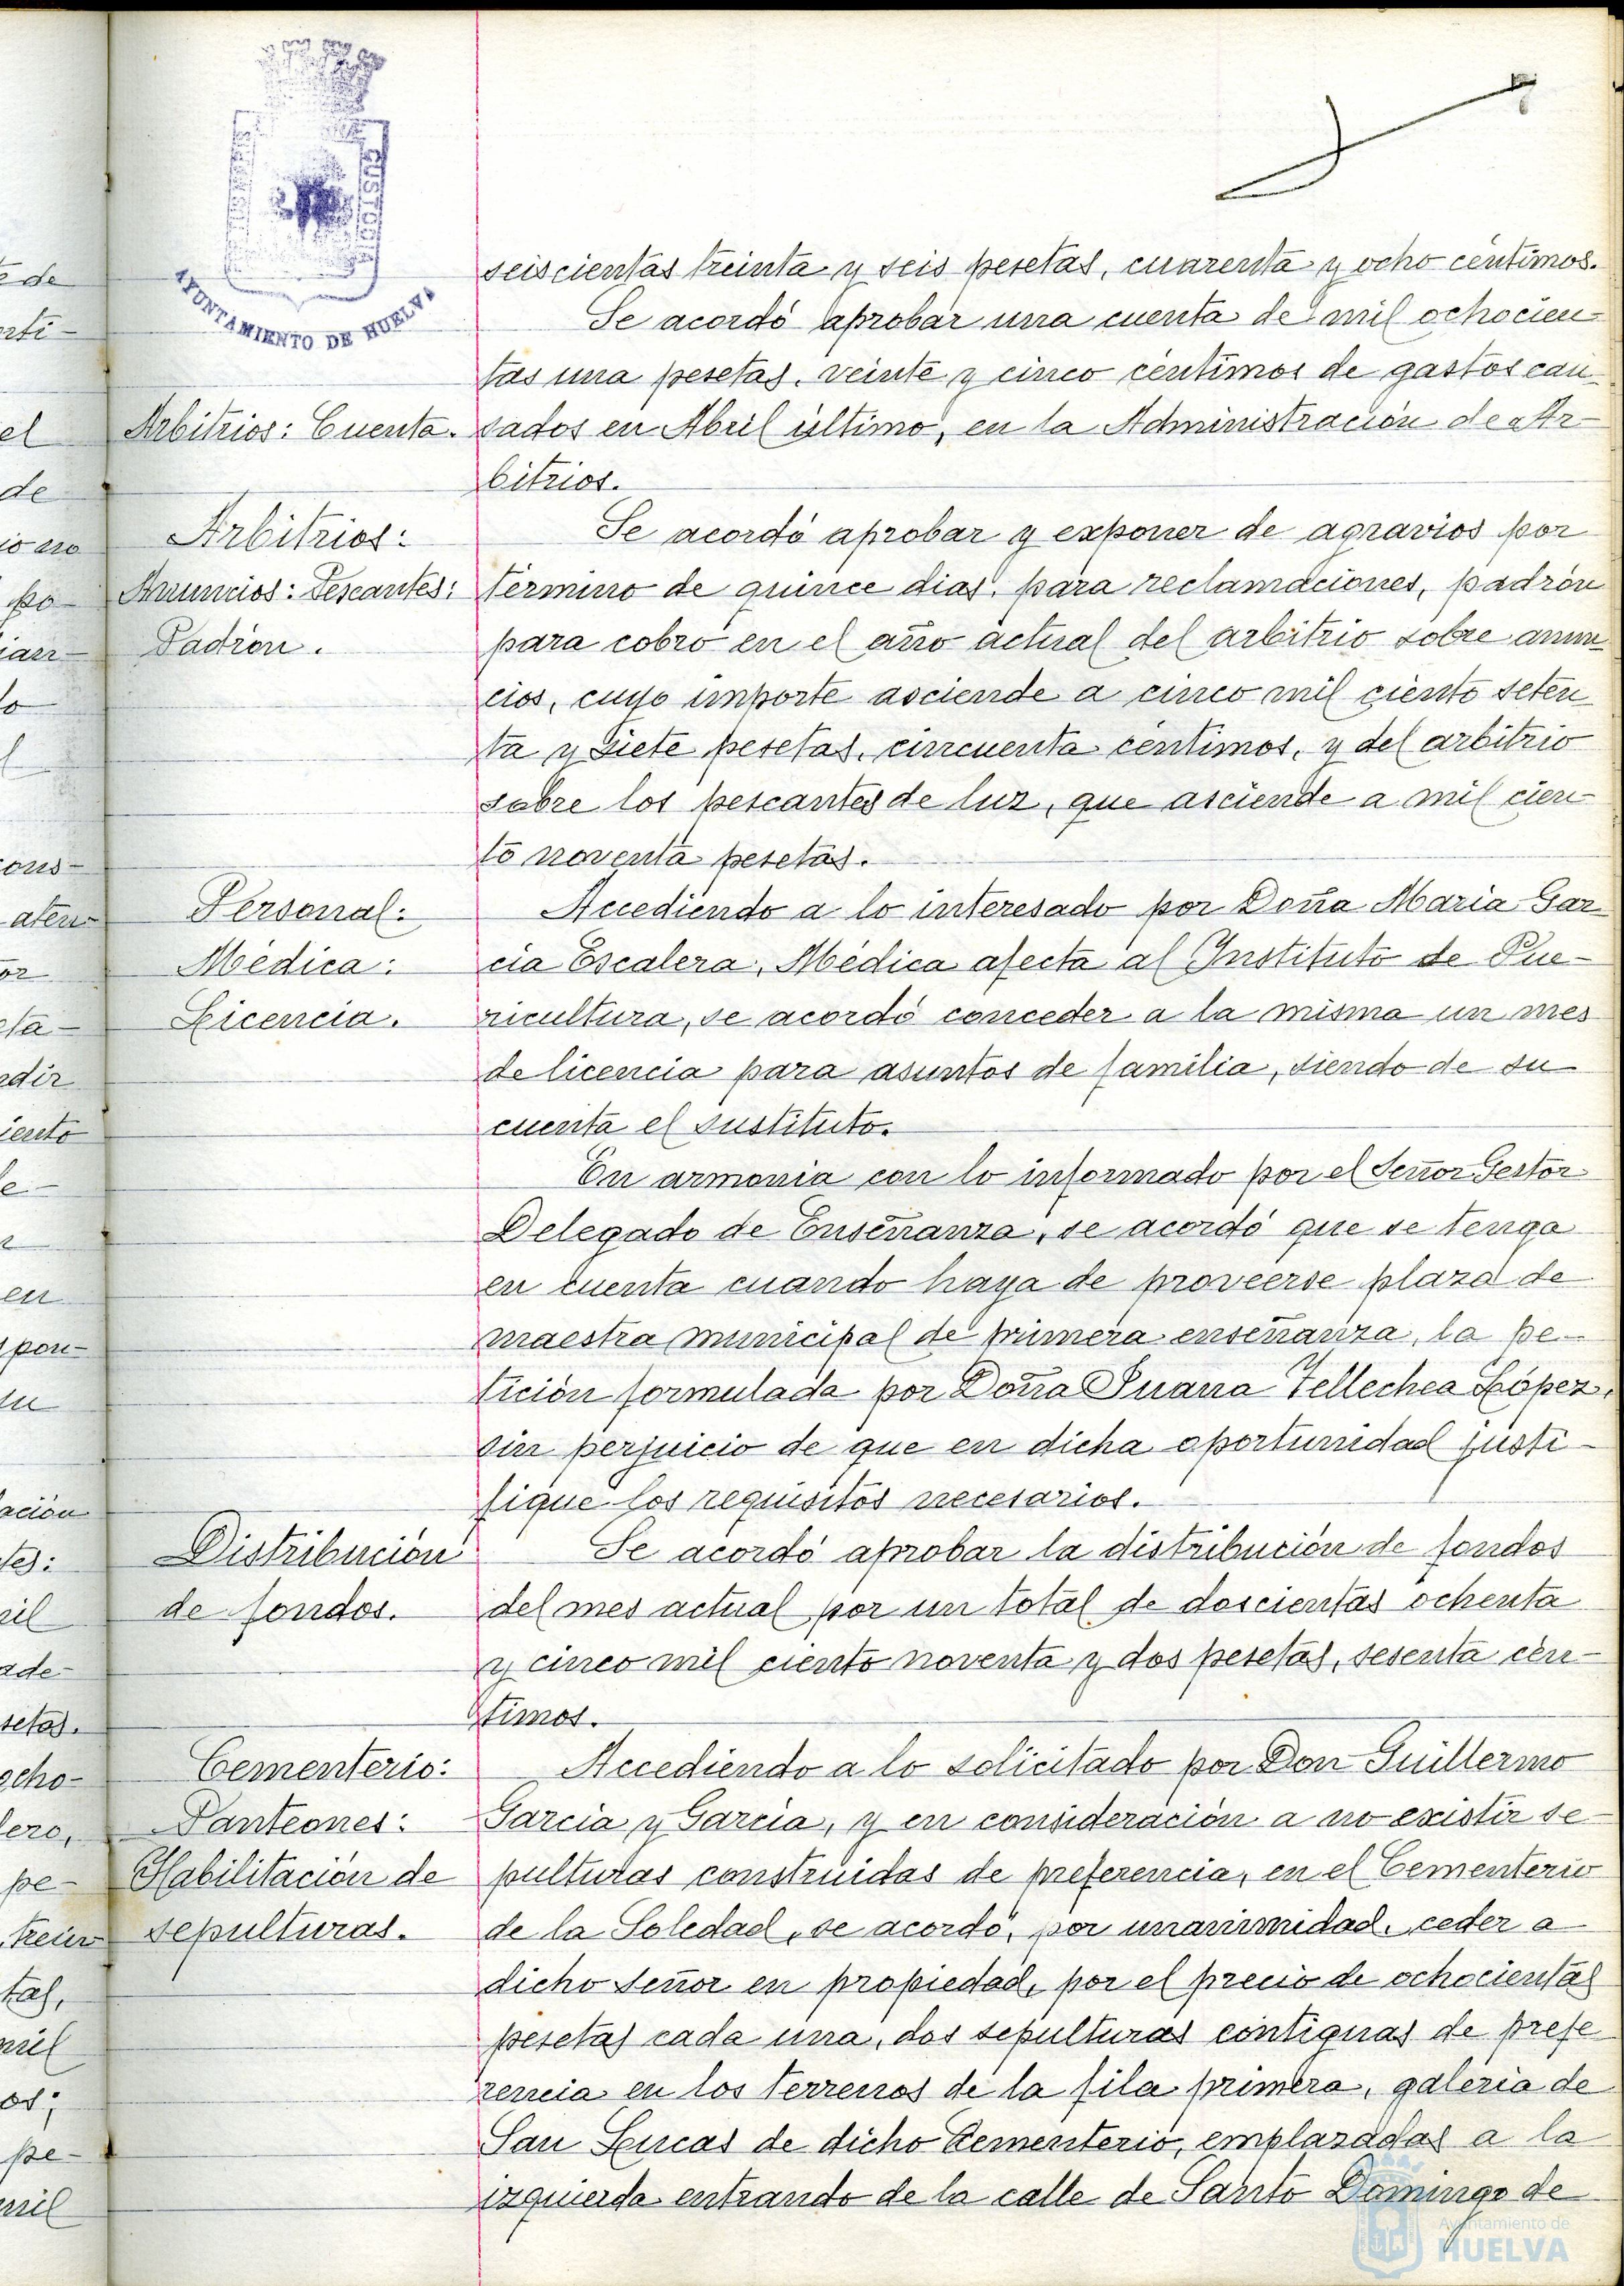 AYUNTAMIENTO DE HUELVA
seiscientas treinta y seis pesetas, cuarenta y ocho céntimos.
Se acordó aprobar una cuenta de mil ochocien-
tas una pesetas, veinte y cinco céntimos de gastos cau-
Arbitrios: Cuenta.
sados en Abril último, en la Administración de Ar-
bitrios.
Arbitrios:
Anuncios: Pescantes:
Padrón.
Se acordó aprobar y exponer de agravios por
término de quince dias, para reclamaciones, padrón
para cobro en el año actual del arbitrio sobre anun-
cios, cuyo importe asciende a cinco mil ciento seten
ta y siete pesetas, cincuenta céntimos, y del arbitrio
sobre los pescantes de luz, que asciende a mil cien-
to noventa pesetas.
Personal:
Médica:
Licencia.
Accediendo a lo interesado por Doña Maria Gar
cia Escalera, Médica afecta al Instituto de Pue-
ricultura, se acordó conceder a la misma un mes
de licencia para asuntos de familia, siendo de su
cuenta el sustituto.
En armonia con lo informado por el Señor Gestor
Delegado de Enseñanza, se acordó que se tenga
en cuenta cuando haya de proveerse plaza de
maestra municipal de primera enseñanza, la pe-
tición formulada por Doña Juana Tellechea López,
sin perjuicio de que en dicha oportunidad justi-
fique los requisitos necesarios.
Distribución
de fondos.
Se acordó aprobar la distribución de fondos
del mes actual por un total de doscientas ochenta
y cinco mil ciento noventa y dos pesetas, sesenta cén-
timos.
Cementerio:
Panteones:
Habilitación de
sepulturas.
Accediendo a lo solicitado por Don Guillermo
Garcia y Garcia, y en consideración a no existir se-
pulturas construidas de preferencia, en el Cementerio
de la Soledad, se acordó, por unanimidad, ceder a
dicho señor en propiedad, por el precio de ochocientas
pesetas cada una, dos sepulturas contiguas de prefe
rencia en los terrenos de la fila primera, galeria de
San Lucas de dicho Cementerio, emplazadas a la
izquierda entrando de la calle de Santo Domingo de
Ayuntamiento de
HUELVA